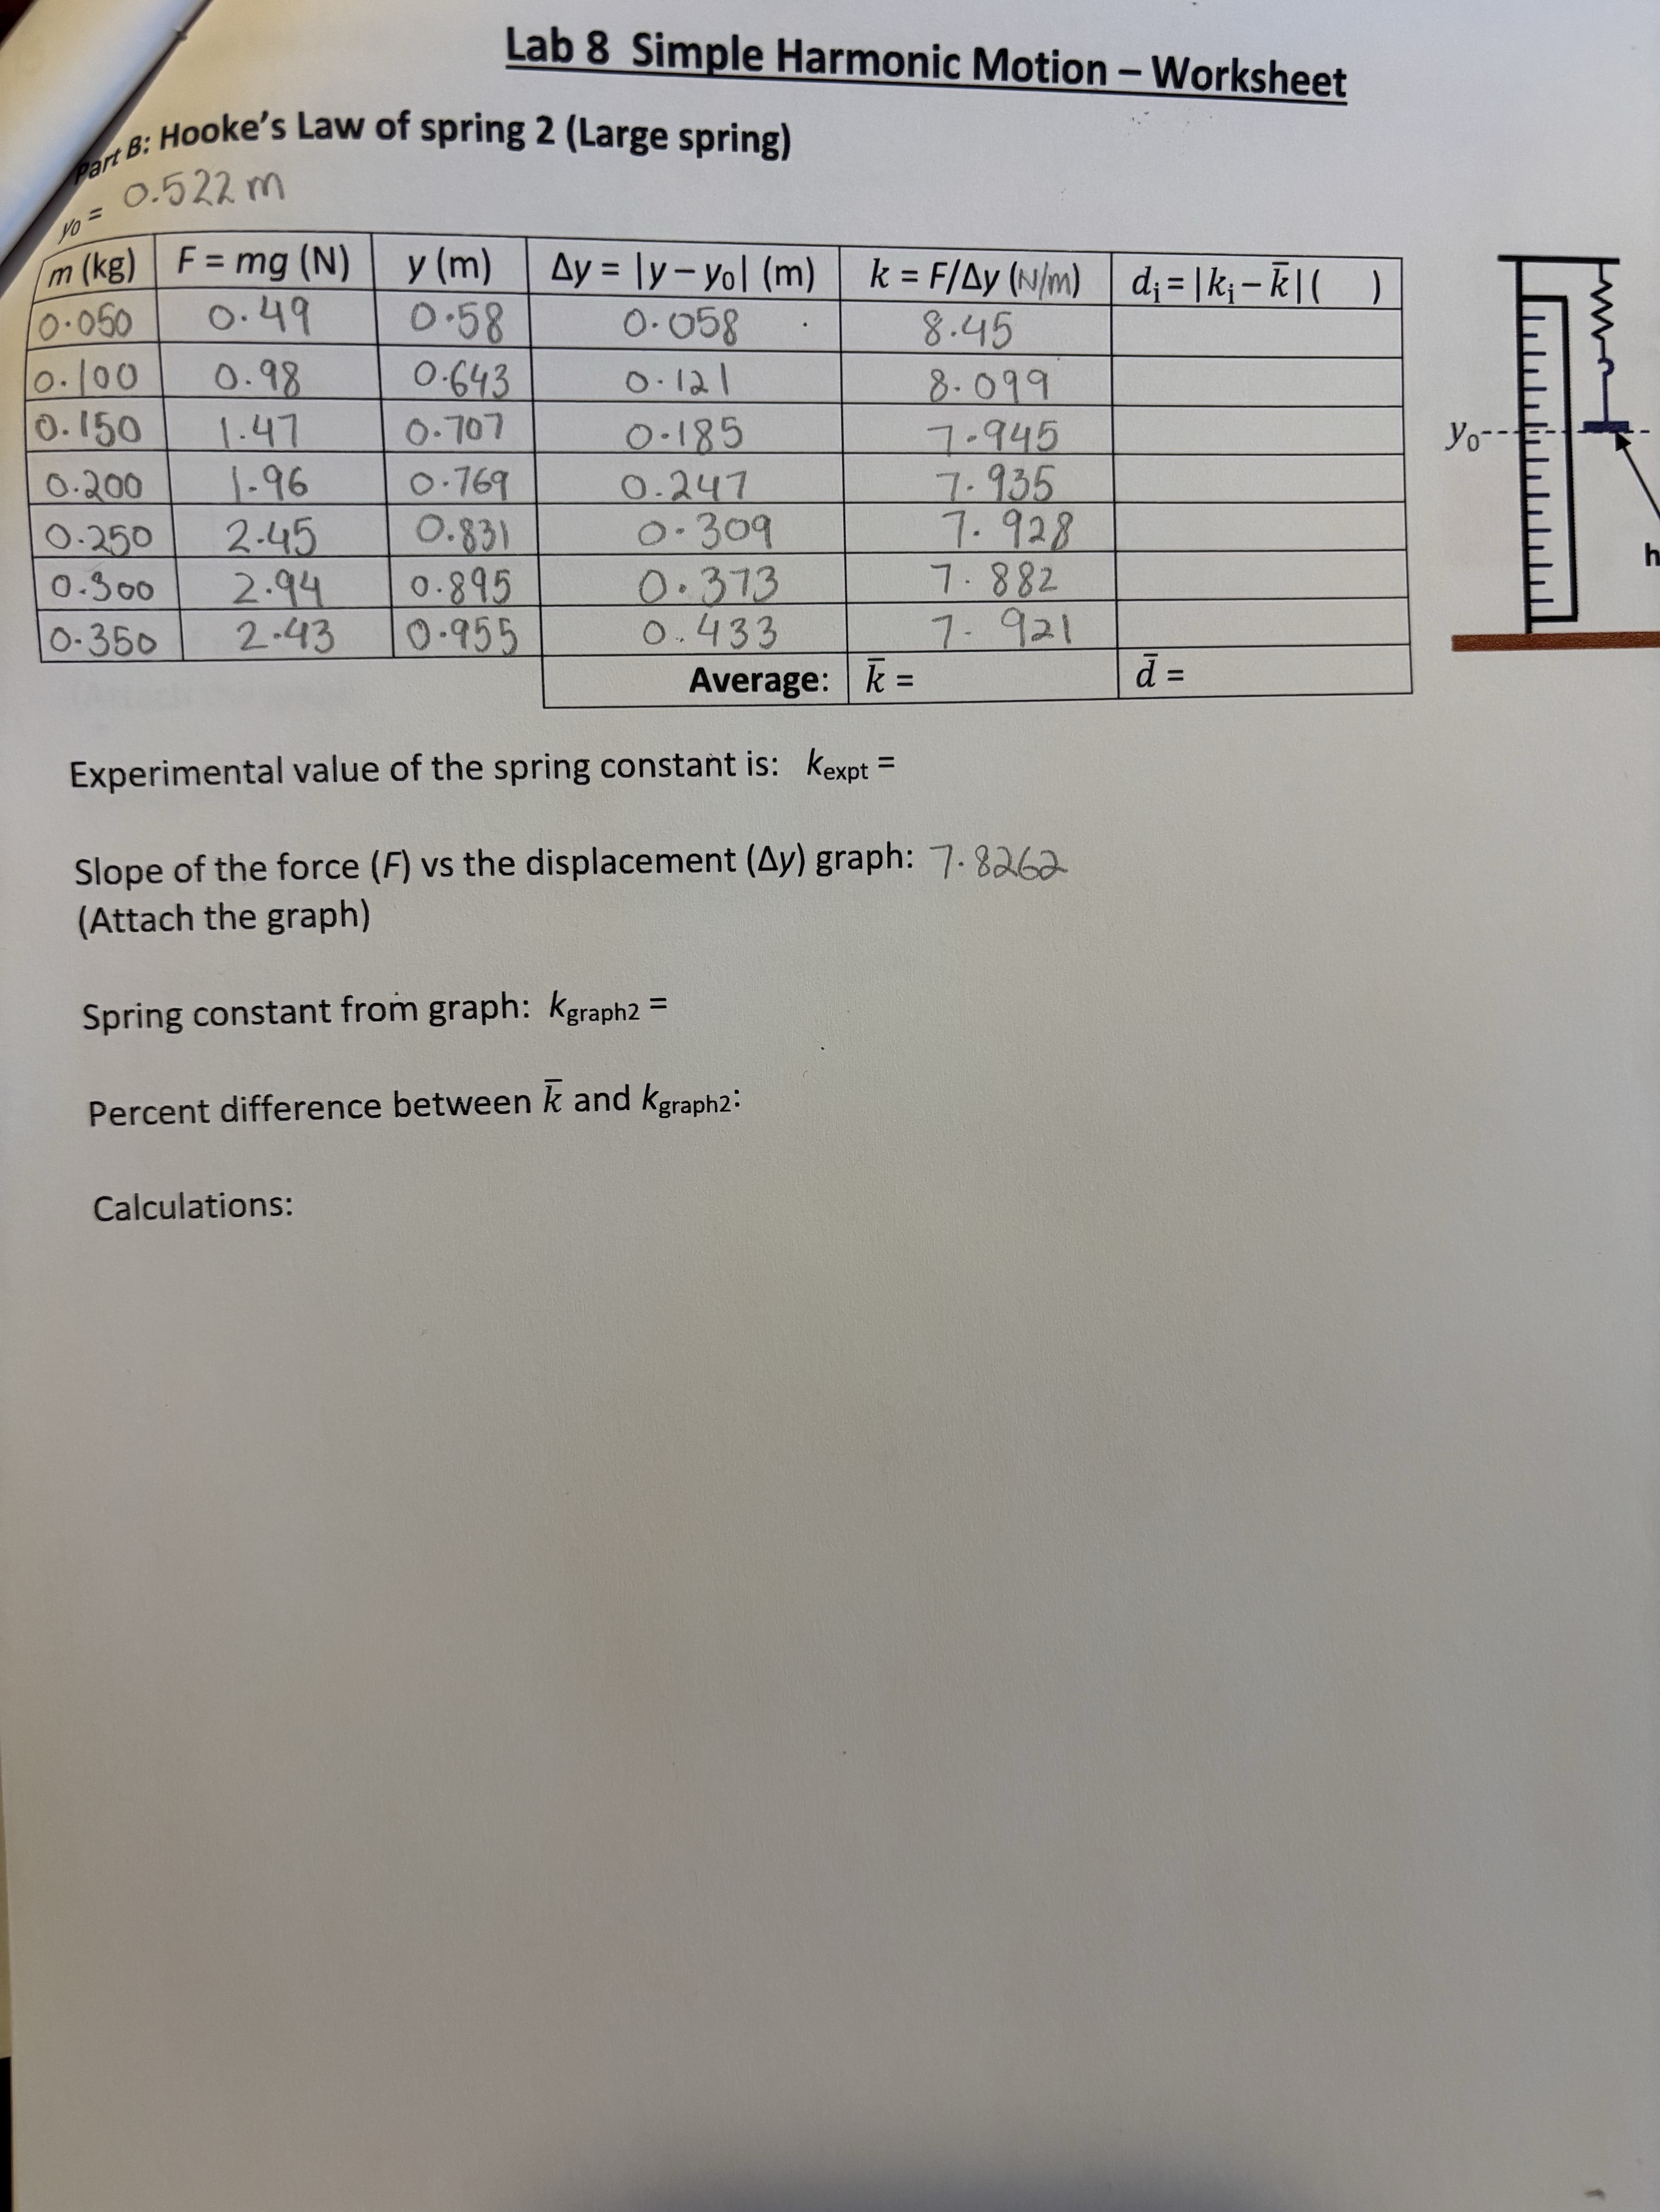 Lab 8 Simple Harmonic Motion – Worksheet
Part B: Hooke's Law of spring 2 (Large spring)
y₀ = 0.522 m
m (kg) F = mg (N) y (m) Δy = |y – y₀| (m) k = F/Δy (N/m) dᵢ = |kᵢ – k̄| ( )
0.050 0.49 0.58 0.058 8.45
0.100 0.98 0.643 0.121 8.099
0.150 1.47 0.707 0.185 7.945
0.200 1.96 0.769 0.247 7.935
0.250 2.45 0.831 0.309 7.928
0.300 2.94 0.895 0.373 7.882
0.350 2.43 0.955 0.433 7.921
Average: k̄ = d̄ =
y₀
h
Experimental value of the spring constant is: k_expt =
Slope of the force (F) vs the displacement (Δy) graph: 7.8262
(Attach the graph)
Spring constant from graph: k_graph2 =
Percent difference between k̄ and k_graph2:
Calculations: